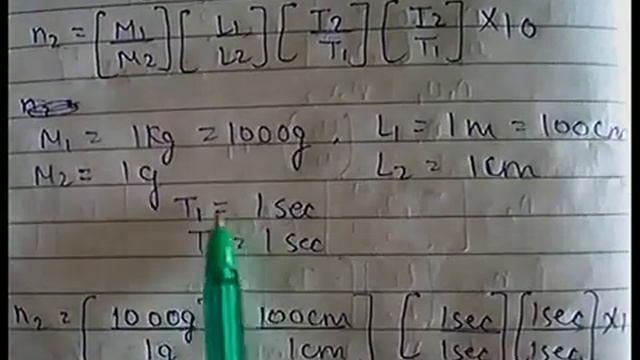 n₂ = [M₁/M₂] [L₁/L₂] [T₂/T₁] [T₂/T₁] × 10
M₁ = 1Kg = 1000g . L₁ = 1m = 100cm
M₂ = 1g L₂ = 1cm
T₁ = 1sec
T = 1sec
n₂ = [1000g/1g 100cm/1cm] [1sec/1sec] [1sec/1sec] ×1